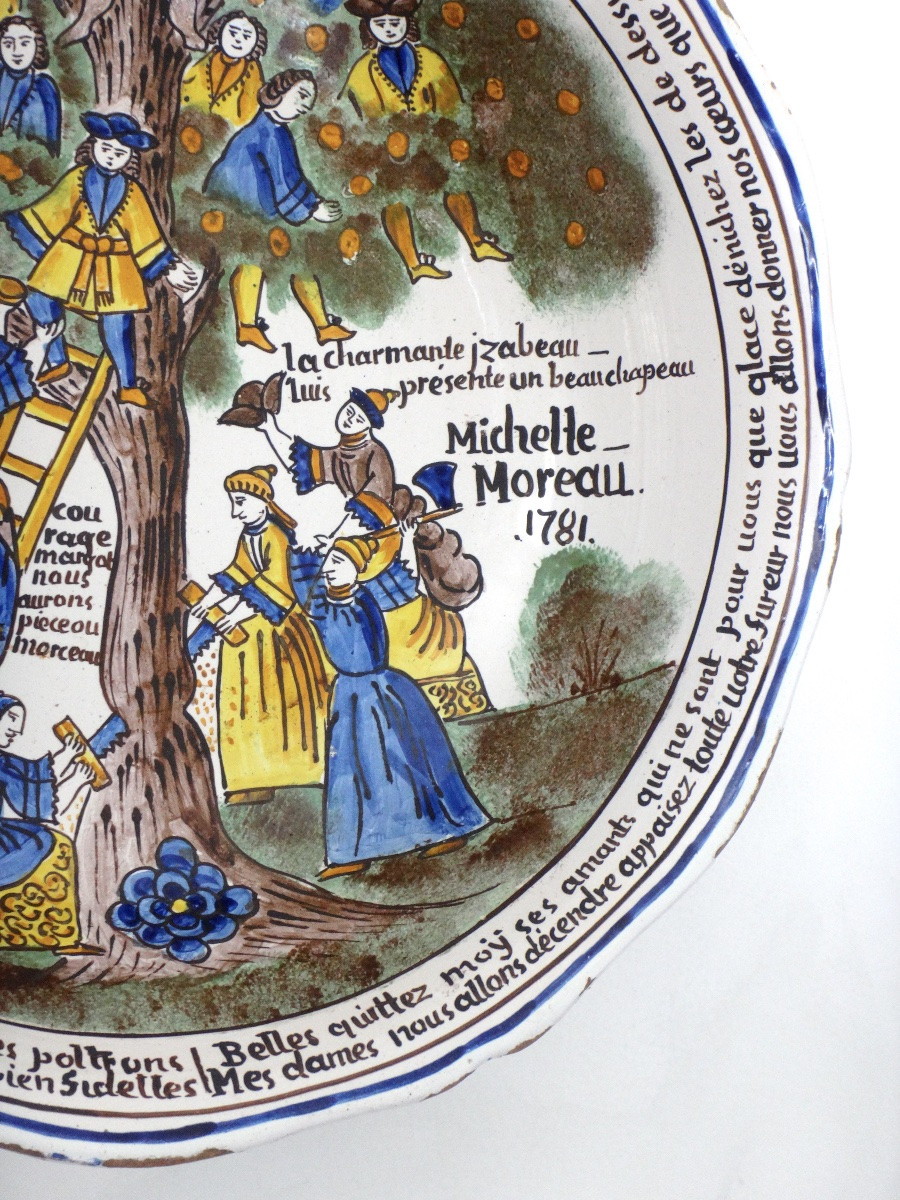 la charmante jzabeau —
luis présente un beau chapeau
Michelle —
Moreau.
.1781.
cou
rage
margot
nous
aurons
pièce ou
morceau
es poltrons
bien fidelles
Belles quittez moÿ ses amants qui ne sont pour vous que glace dénichez les de dessu
Mes dames nous allons décendre appaisez toute votre fureur nous vous allons donner nos cœurs que